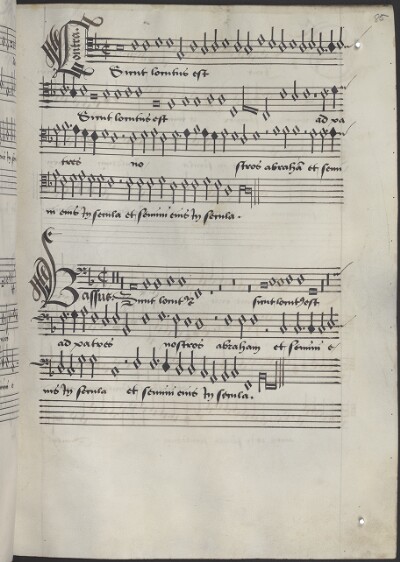 86
Contra
Sicut locutus est
Sicut locutus est ad pa
tres no stros abraham et semi
ni eius In secula et semini eius In secula.
Bassus Sicut locut9 est sicut locut9 est
ad patres nostros abraham et semini e
ius In secula et semini eius In secula.